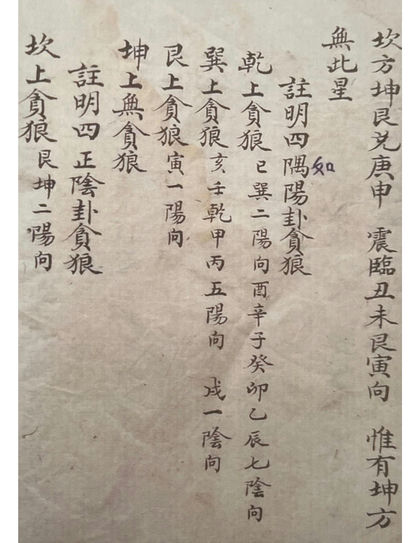 坎方坤艮兌庚申　震臨丑未艮寅向　惟有坤方
無此星
註明四隅陽卦貪狼
如
乾上貪狼　巳巽二陽向酉辛子癸卯乙辰七陰向
巽上貪狼　亥壬乾甲丙五陽向　戌一陰向
艮上貪狼　寅一陽向
坤上無貪狼
註明四正陰卦貪狼
坎上貪狼　艮坤二陽向